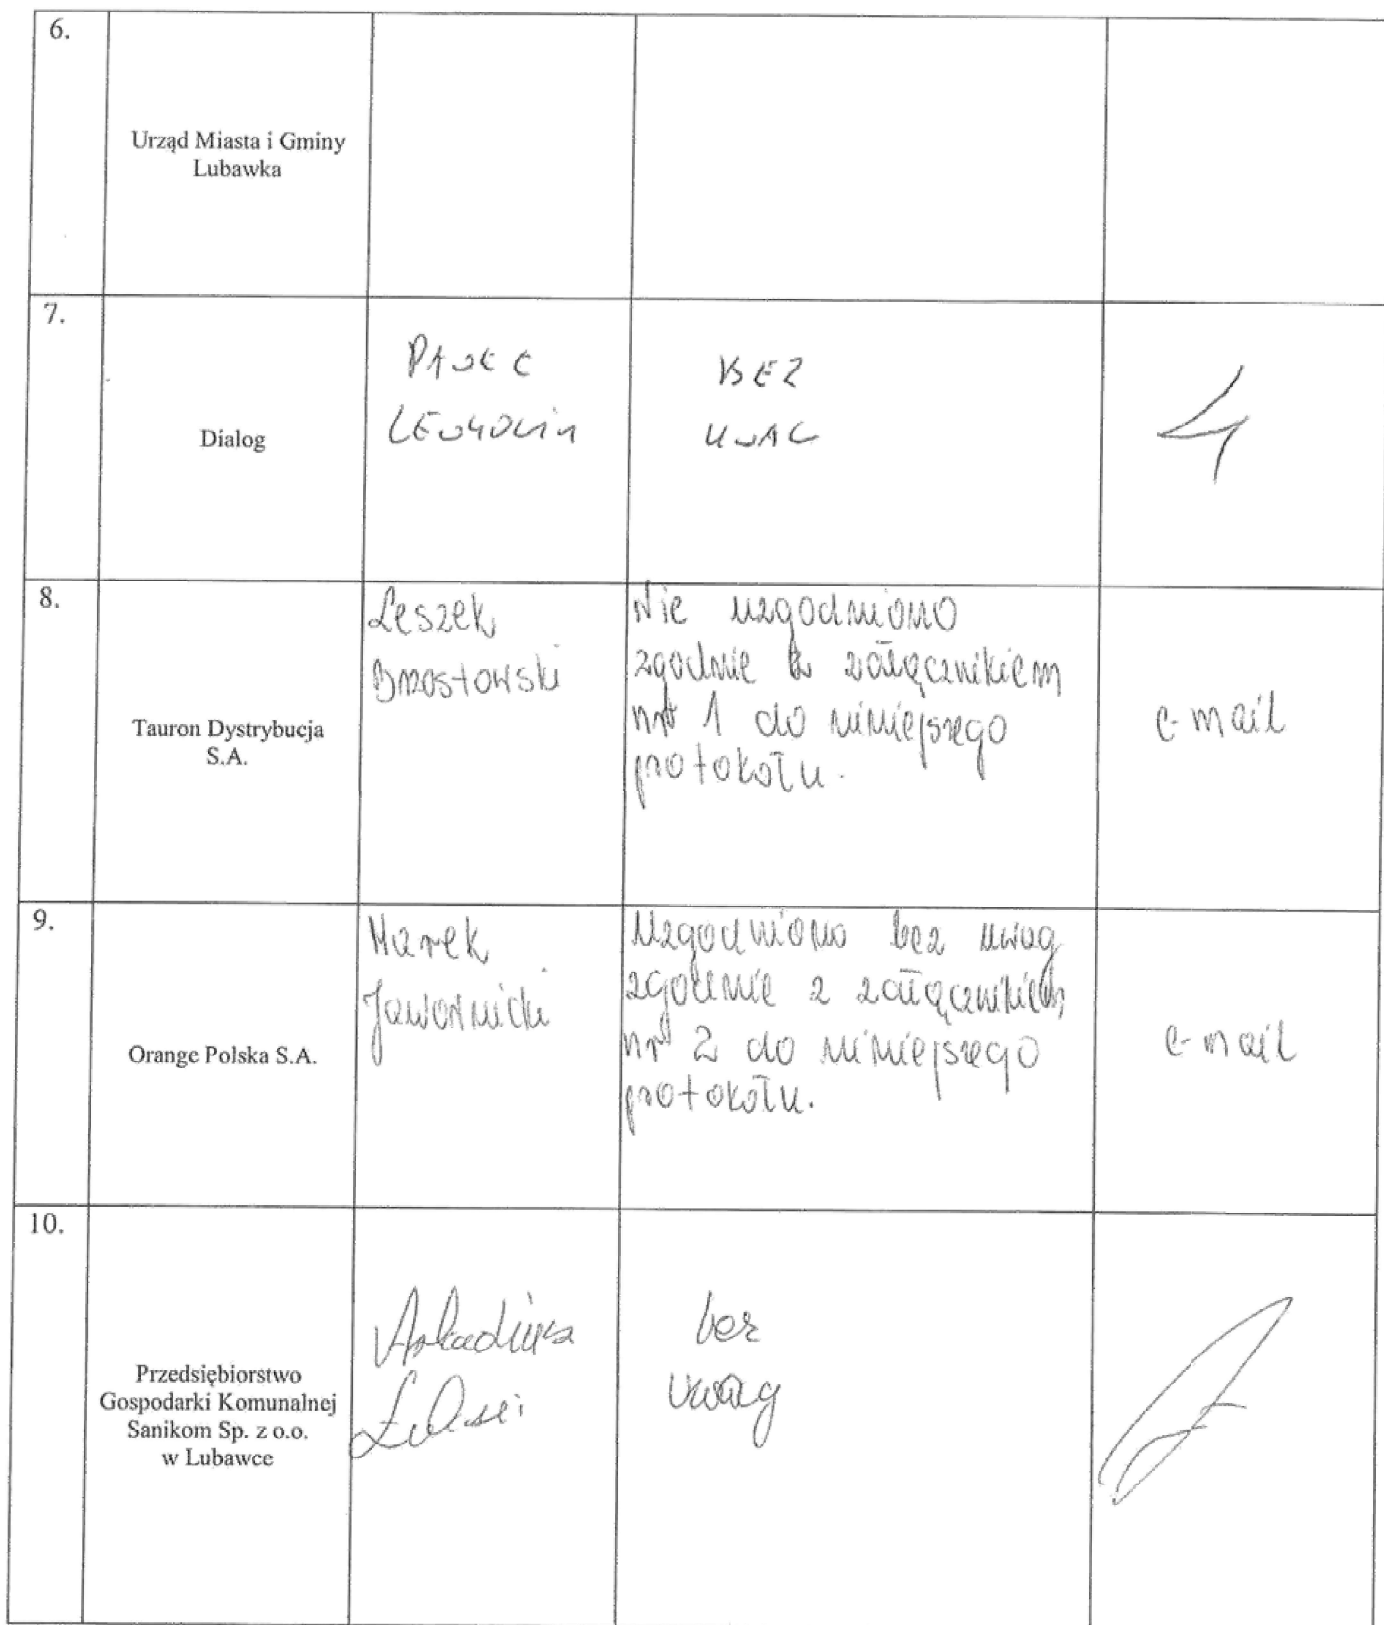 6.
Urząd Miasta i Gminy
Lubawka
7.
Dialog
BEZ
UWAG
8.
Tauron Dystrybucja
S.A.
Leszek
Brzostowski
Nie uzgodniono
zgodnie z załącznikiem
nr 1 do niniejszego
protokołu.
e-mail
9.
Orange Polska S.A.
Marek
Jawornicki
Uzgodniono bez uwag
zgodnie z załącznikiem
nr 2 do niniejszego
protokołu.
e-mail
10.
Przedsiębiorstwo
Gospodarki Komunalnej
Sanikom Sp. z o.o.
w Lubawce
Arkadiusz
bez
uwag